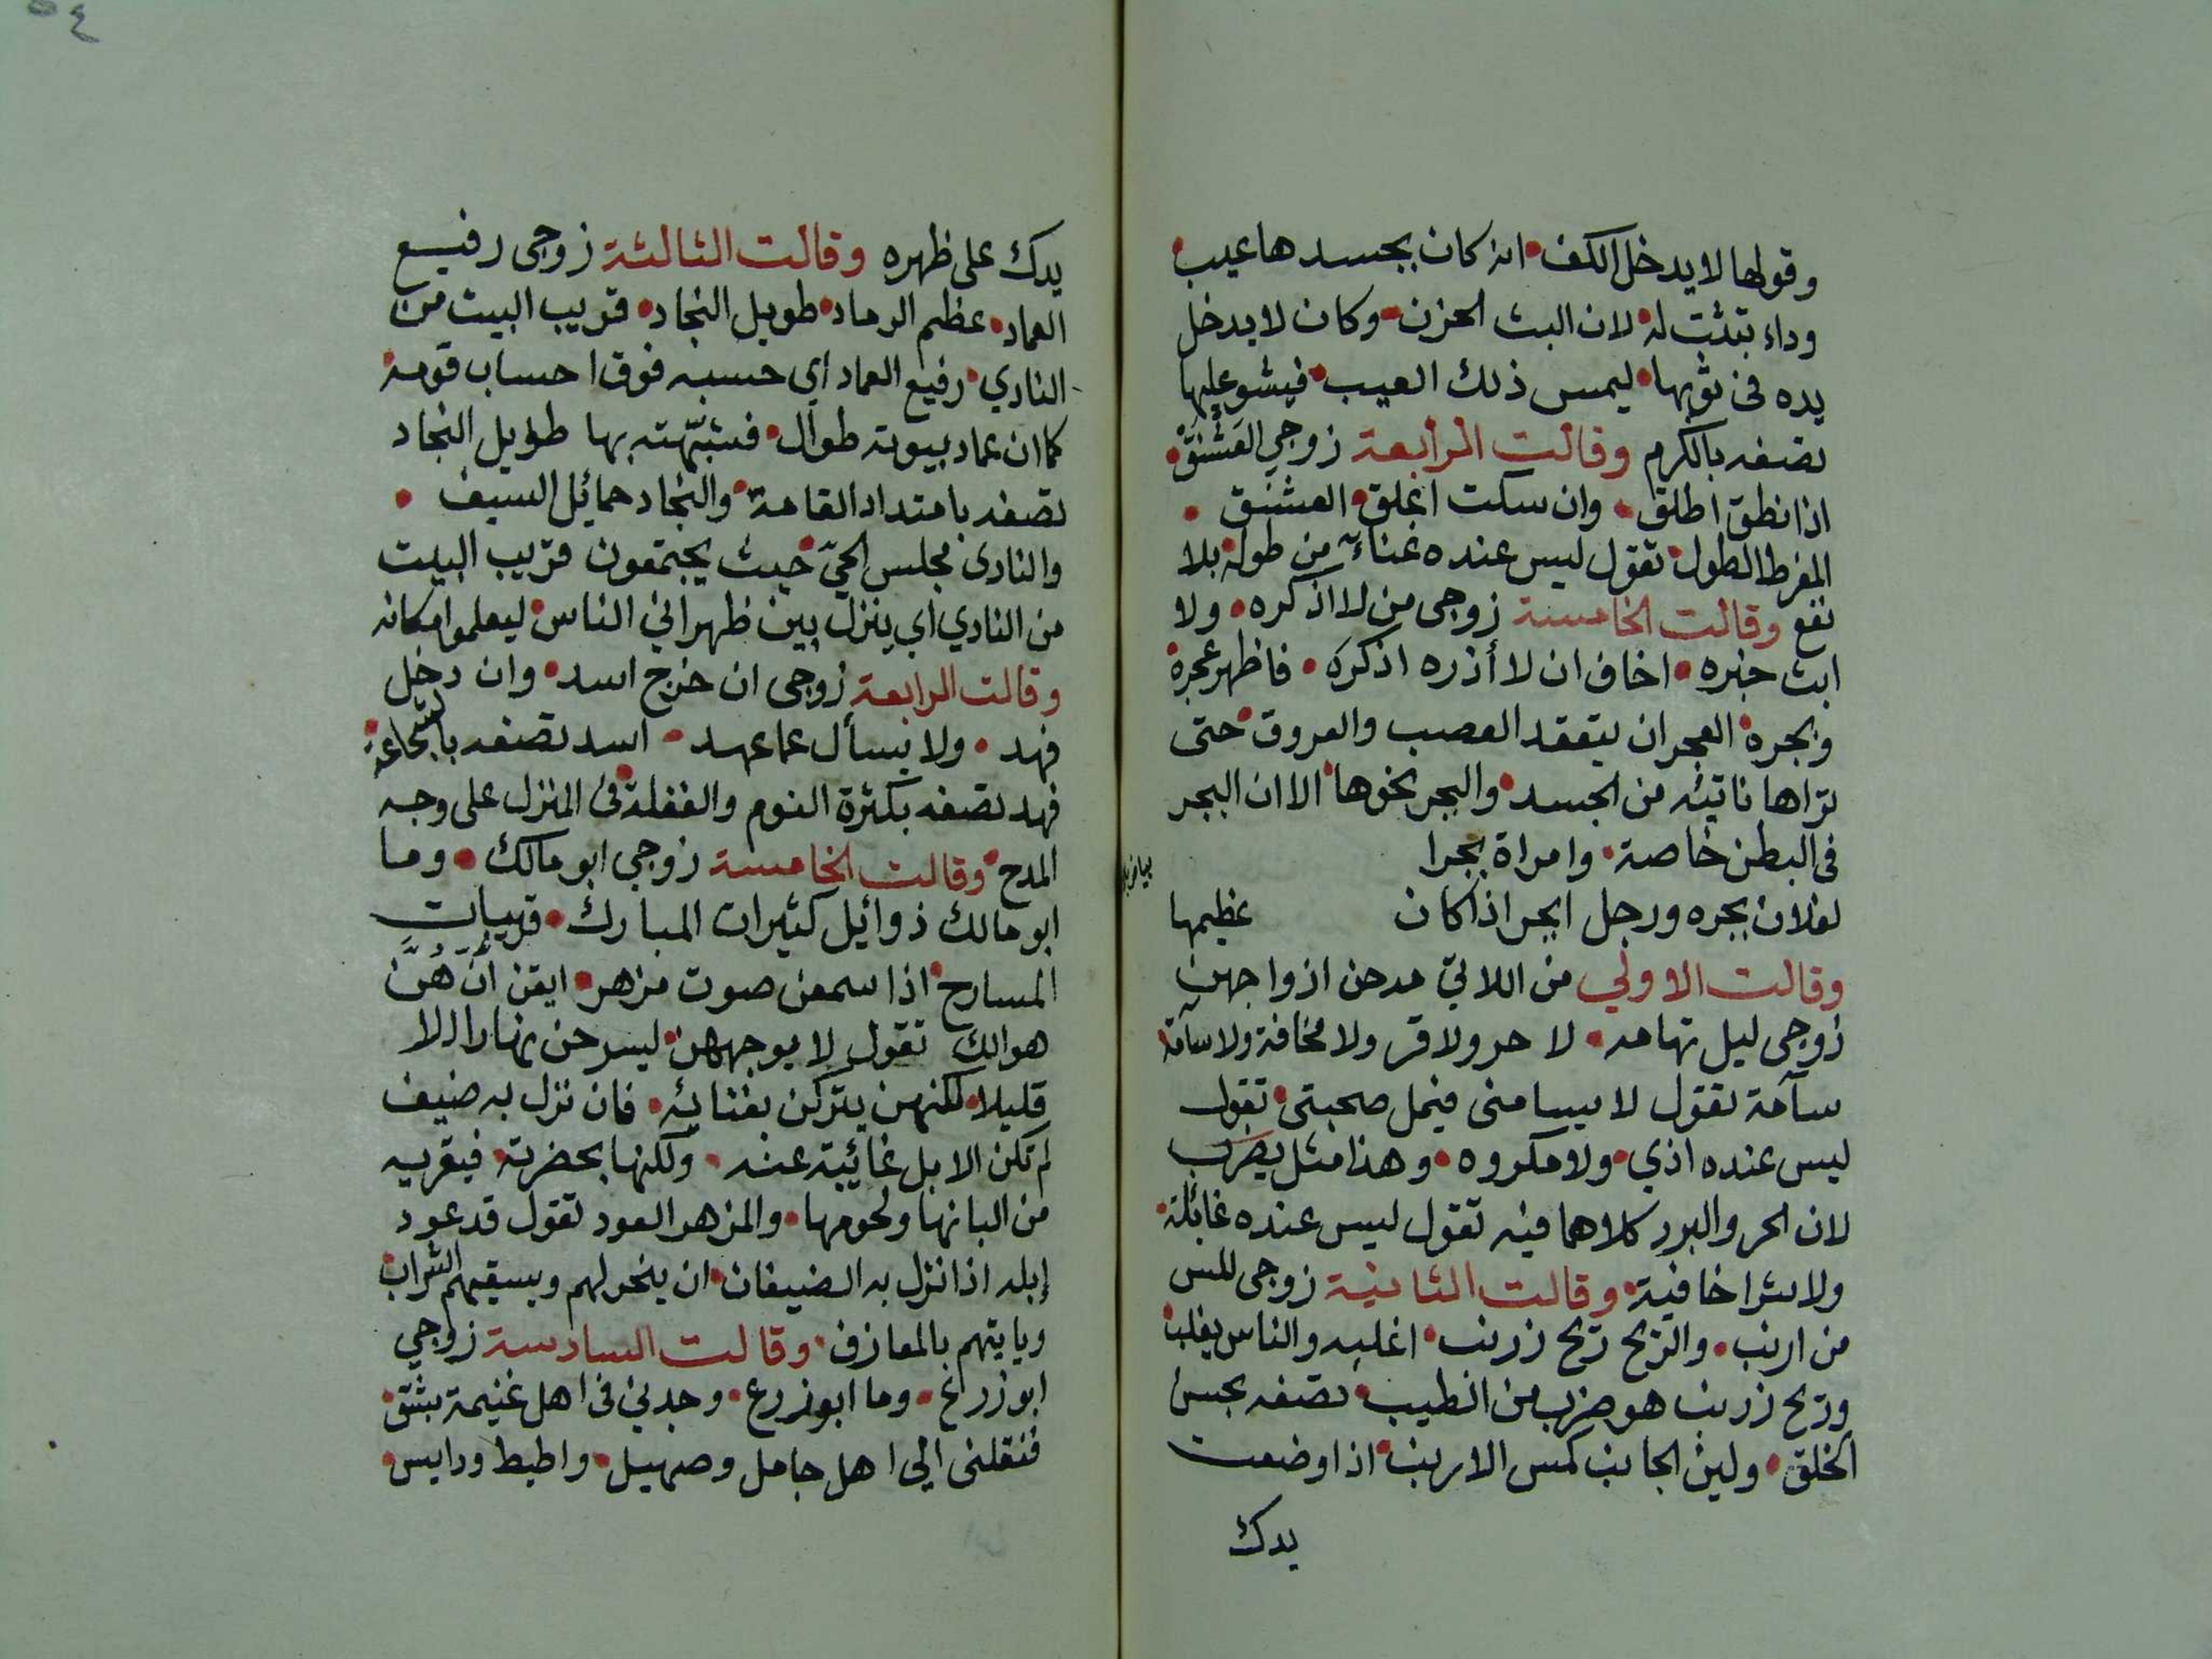 وقولها لا يدخل الكف انه كان بجسدها عيب
وداء تبتئت له لان البث الحزن وكان لا يدخل
يده في ثوبها ليمس ذلك العيب فيشو عليها
تصفه بالكرم وقالت الرابعة زوجي العَشَنَّق
اذا نطق اطلق وان سكت اغلق العشنق
المفرط الطول تقول ليس عنده غناء من طوله بلا
نفع وقالت الخامسة زوجي من لا اذكره ولا
ابث خبره اخاف ان لا أذره اذكره فاظهر عجره
وبجره العجر ان يتعقد العصب والعروق حتى
تراها ناتئه من الجسد والبجر نحوها الا ان البجر
في البطن خاصة وامراة بجرا
لفلان بجره ورجل ابجر اذا كان عظيمها
وقالت الاولي من اللاتي مدحن ازواجهن
زوجي ليل تهامه لا حر ولا قر ولا مخافة ولا سآمة
سآمة تقول لا يسامني فيمل صحبتي تقول
ليس عنده اذي ولا مكروه وهذا مثل يضرب
لان الحر والبرد كلاهما فيه تقول ليس عنده غائلة
ولا شرا خافية وقالت الثانية زوجي للس
من ارنب والريح ريح زرنب اغلبه والناس يغلب
وريح زرنب هو ضرب من الطيب تصفه بحسن
الخلق ولين الجانب كمس الارنب اذا وضعت
يدك
٥٤
يدك على ظهره وقالت الثالثة زوجي رفيع
العماد عظيم الرماد طويل النجاد قريب البيت من
النادي رفيع العماد اي حسبه فوق احساب قومه
كما ان عماد بيوته طوال فشبّهته بها طويل النجاد
تصفه بامتداد القامة والنجاد حمائل السيف
والنادي مجلس الحيّ حيث يجتمعون قريب البيت
من النادي اي ينزل بين ظهراني الناس ليعلموا مكانه
وقالت الرابعة زوجي ان خرج اسد وان دخل
فهد ولا يسأل عما عهد اسد تصفه بالشجاعة
فهد تصفه بكثرة النوم والغفلة في المنزل على وجه
المدح وقالت الخامسة زوجي ابو مالك وما
ابو مالك ذو ائبل كثيرات المبارك قريبات
المسارح اذا سمعن صوت مزهر ايقن انّهُنّ
هوالك تقول لا يوجههن ليسرحن نهارا الا
قليلا لكنهن يتركن بفنائه فان نزل به ضيف
لم تكن الابل غائبة عنه ولكنها بحضرته فيقريه
من البانها ولحومها والمزهر العود تقول قد عود
إبله اذا نزل به الضيفان ان ينحر لهم ويسقيهم الشراب
وياتيهم بالمعازف وقالت السادسة زوجي
ابو زرع وما ابو زرع وجدني في اهل غنيمة بشق
فنقلني الي اهل جامل وصهيل واطيط ودايس